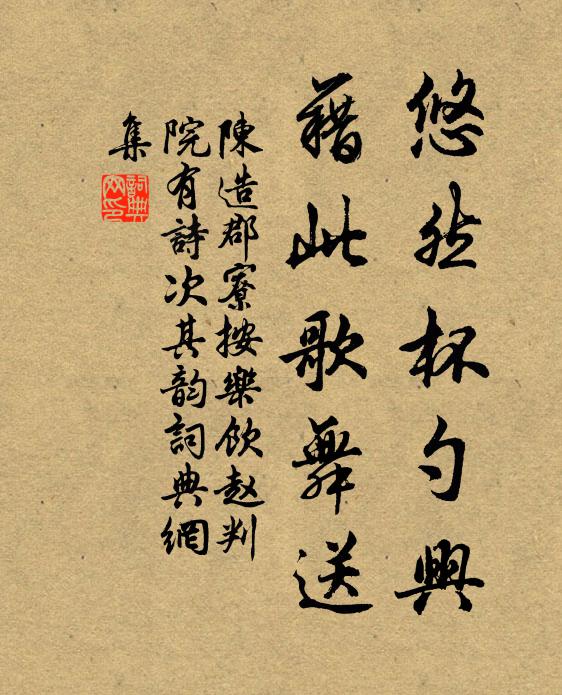 悠然杯勺興
藉此歌舞送
陳造郡寮按樂飲趙判
院有詩次其韵詞典網
集
詞典網印